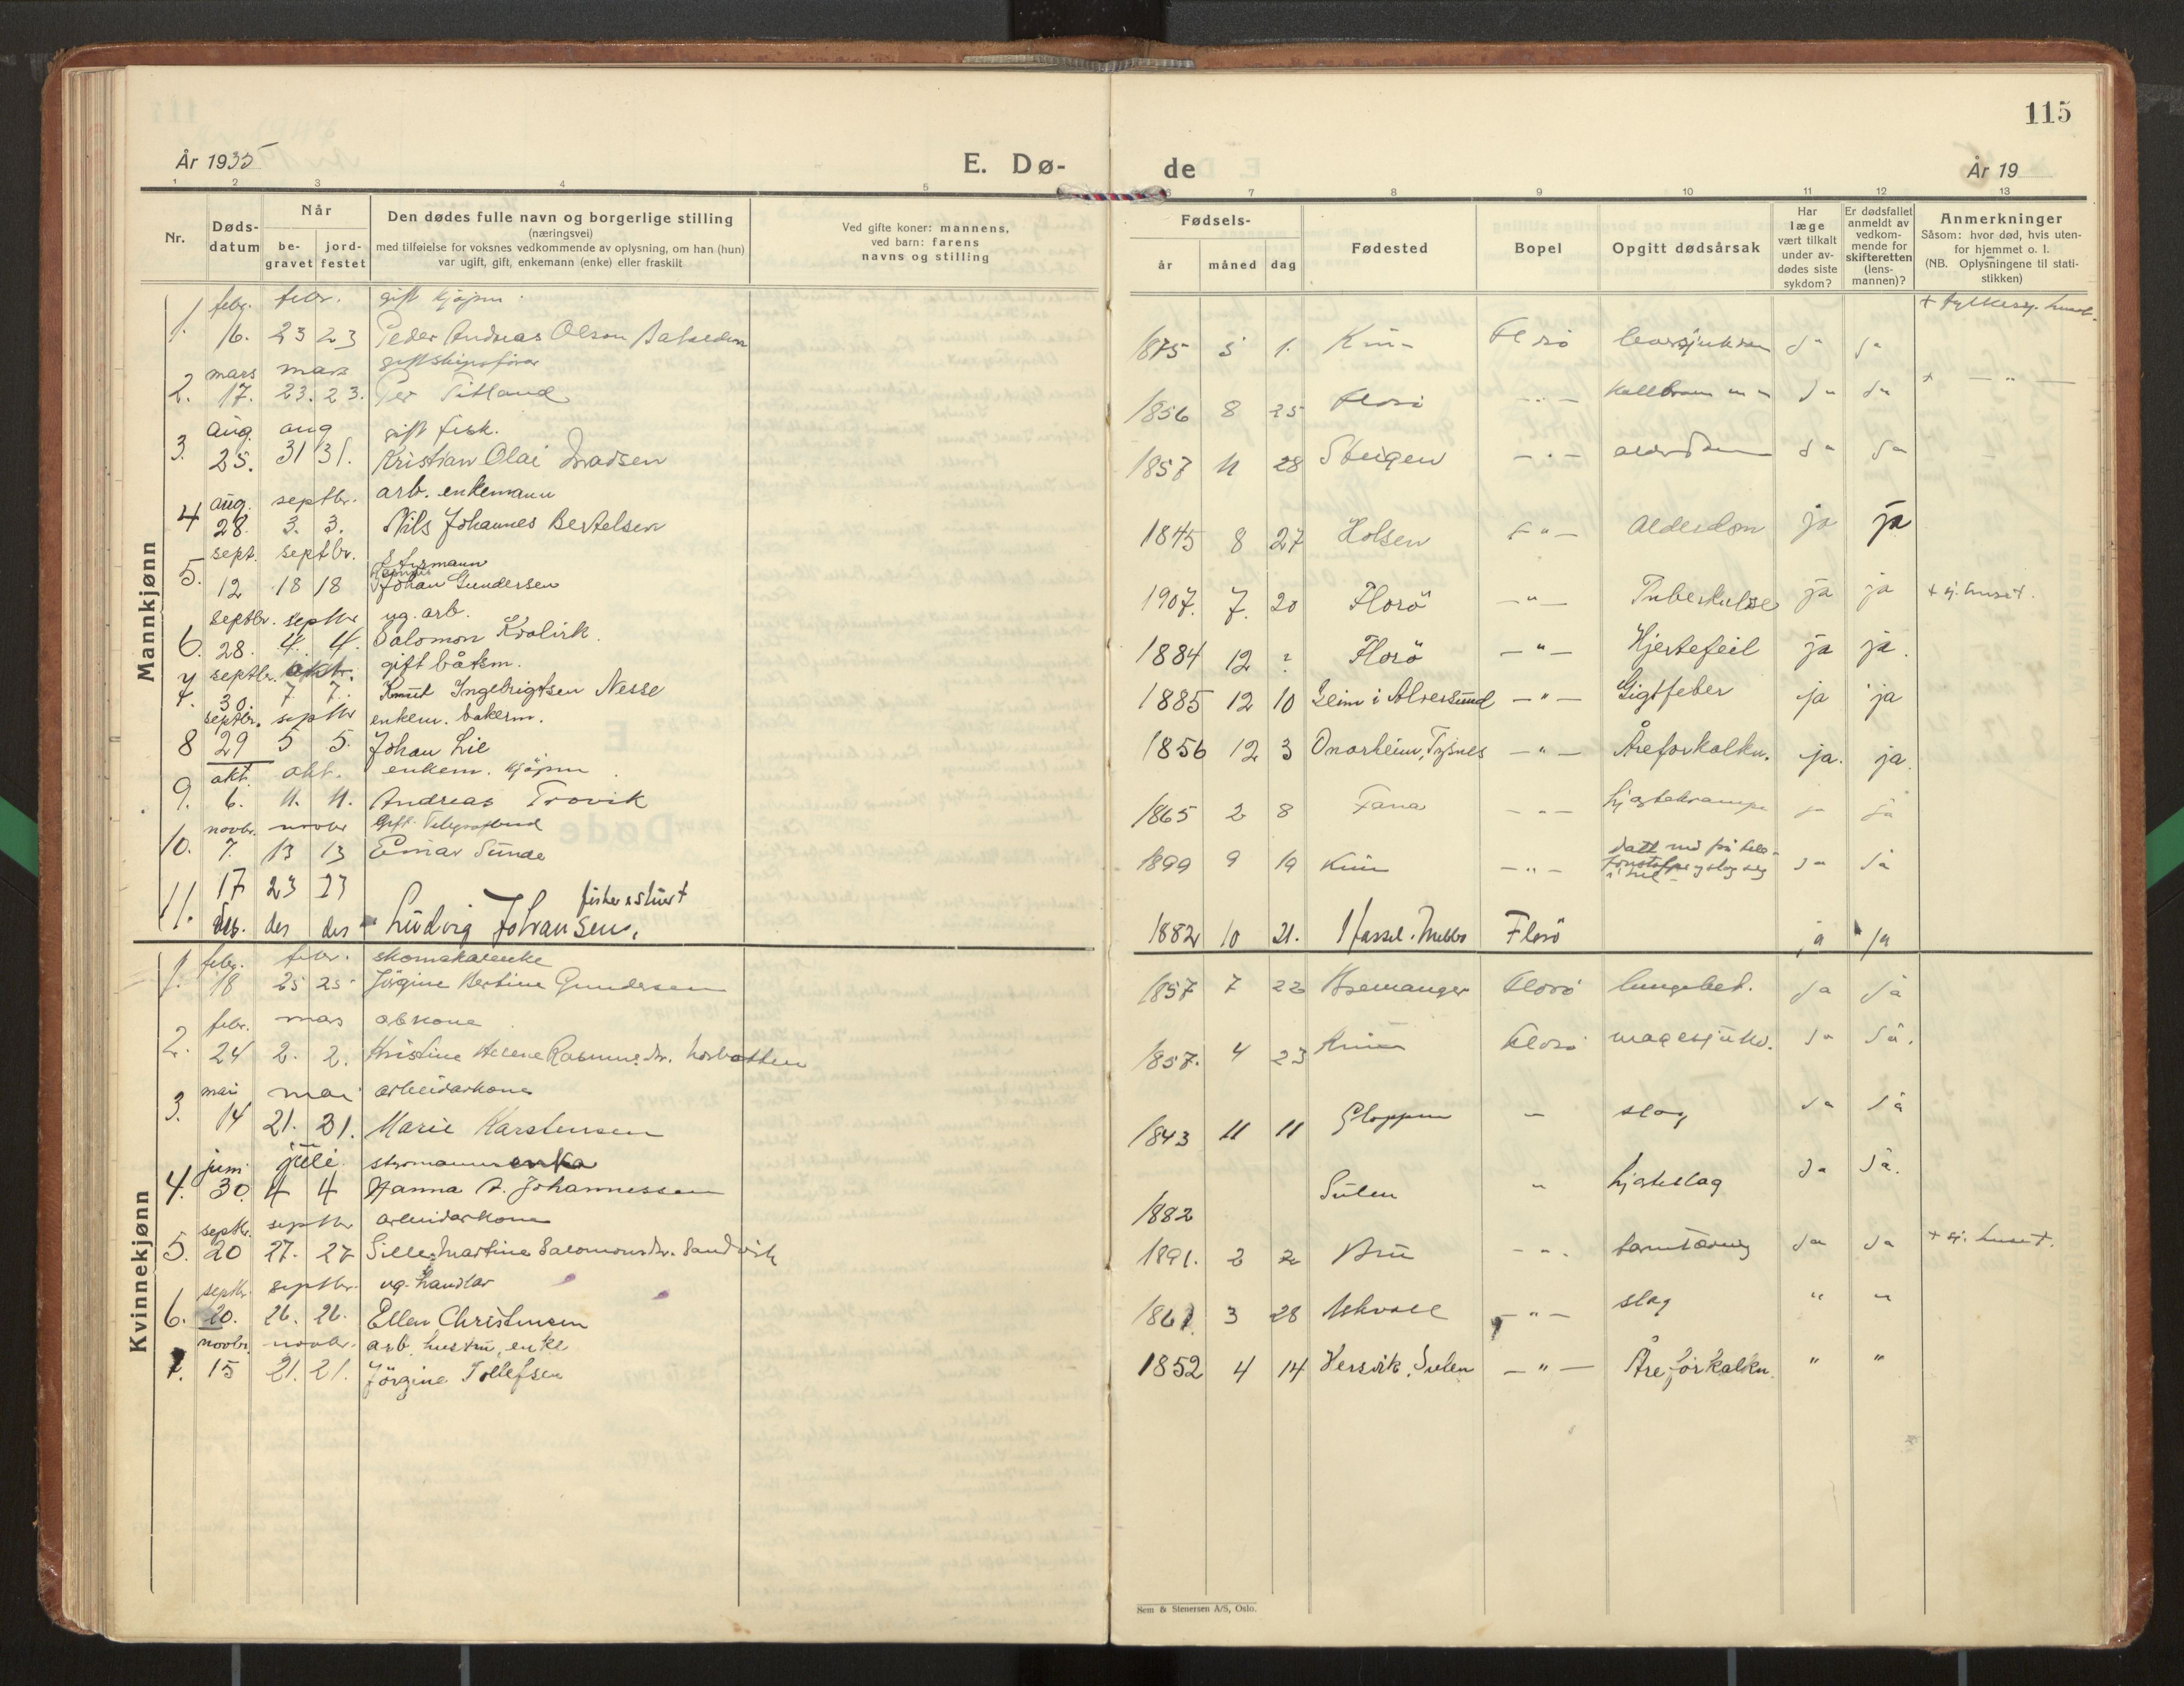 115
År 1935
E. Dø-
de
År 19
1 2 3 4 5 6 7 8 9 10 11 12 13
Nr.
Døds-
datum
Når
be-
gravet
jord-
festet
Den dødes fulle navn og borgerlige stilling
(næringsvei)
med tilføielse for voksnes vedkommende av oplysning, om han (hun)
var ugift, gift, enkemann (enke) eller fraskilt
Ved gifte koner: mannens,
ved barn: farens
navns og stilling
Fødsels-
år måned dag
Fødested
Bopel
Opgitt dødsårsak
Har
læge
vært tilkalt
under av-
dødes siste
sykdom?
Er dødsfallet
anmeldt av
vedkom-
mende for
skifteretten
(lens-
mannen)?
Anmerkninger
Såsom: hvor død, hvis uten-
for hjemmet o. l.
(NB. Oplysningene til stati-
stikken)
Mannkjønn
febr. febr. gift kjøpm.
1. 16. 23 23 Peder Andreas Olson 1875 5 1. Kinn Florø ja ja
mars mars gift skipsfører
2. 17. 23. 23. Per Titland 1856 8 25 Florø - " - ja ja + - " -
aug. aug gift fisk.
3. 25. 31 31. Kristian Olai Madsen 1857 11 28 Steigen - " - alderdom ja ja
aug. septbr. arb. enkemann
4 28. 3. 3. Nils Johannes Bertelsen 1845 8 27 Holsen - " - Alderdom ja ja
sept. septbr.
5. 12 18 18 Johan Gundersen 1907. 7. 20 Florö - " - Tuberkulose ja ja + sj. huset.
septbr. septbr ug. arb.
6. 28. 4. 4. Salomon 1884 12 ? Florö - " - Hjertefeil ja ja.
septbr. oktr. gift båtsm.
7. 30. 7 7. Knut Ingebrigtsen Nesse 1885 12 10 Seim i Alversund - " - Gigtfeber ja ja
septbr. septbr enkem. bakerm.
8 29 5 5. Johan Lie 1856 12 3 Onarheim, Tysnes - " - Åreforkalkn. ja. ja.
okt. okt. enkem. kjøpm
9. 6. 11. 11. Andreas Trovik 1865 2 8 Fana - " - hjertekrampe ja ja
novbr. novbr Gift. Telegrafbud
10. 7. 13 13 Einar Sunde 1899 9 19 Kinn - " - ja ja
17 23 23 fisker
11. des. des des Ludvig Johansen. 1882 10 21. Hassel. Florö ja ja
Kvinnekjønn
febr. febr. skomakarenke
1. 18 25 25 Jörgine Bertine Gundersen 1857 7 22 Bremanger Florø lungebet. ja ja
febr. mars
2. 24 2. 2. Kristine Helene Rasmusdr. 1857. 4 23 Kinn Florø magesjukd. ja ja.
mai mai arbeidarkona
3. 14 21. 21. Marie Karstensen 1843 11 11 Gloppen " slag ja ja
juni juli
4. 30. 4 4 Hanna A. Johannessen 1882 Sulen " hjarteslag ja ja.
septbr. septbr arbeidarkona
5. 20 27. 27 Sille Martine Salomonsdr. Sandvik 1891. 2 2 Bru - " - ja ja + sj. huset.
septbr. septbr. ug. handlar
6. 20. 26. 26. Ellen Christensen 1861. 3 28 Askvoll - " - slag " "
novbr. novbr. arb. hustru, enke
7. 15 21. 21. Jörgine Tollefsen 1852 4 14 Hersvik, Sulen - " - Åreforkalkn. " "
Sem & Stenersen A/S, Oslo.